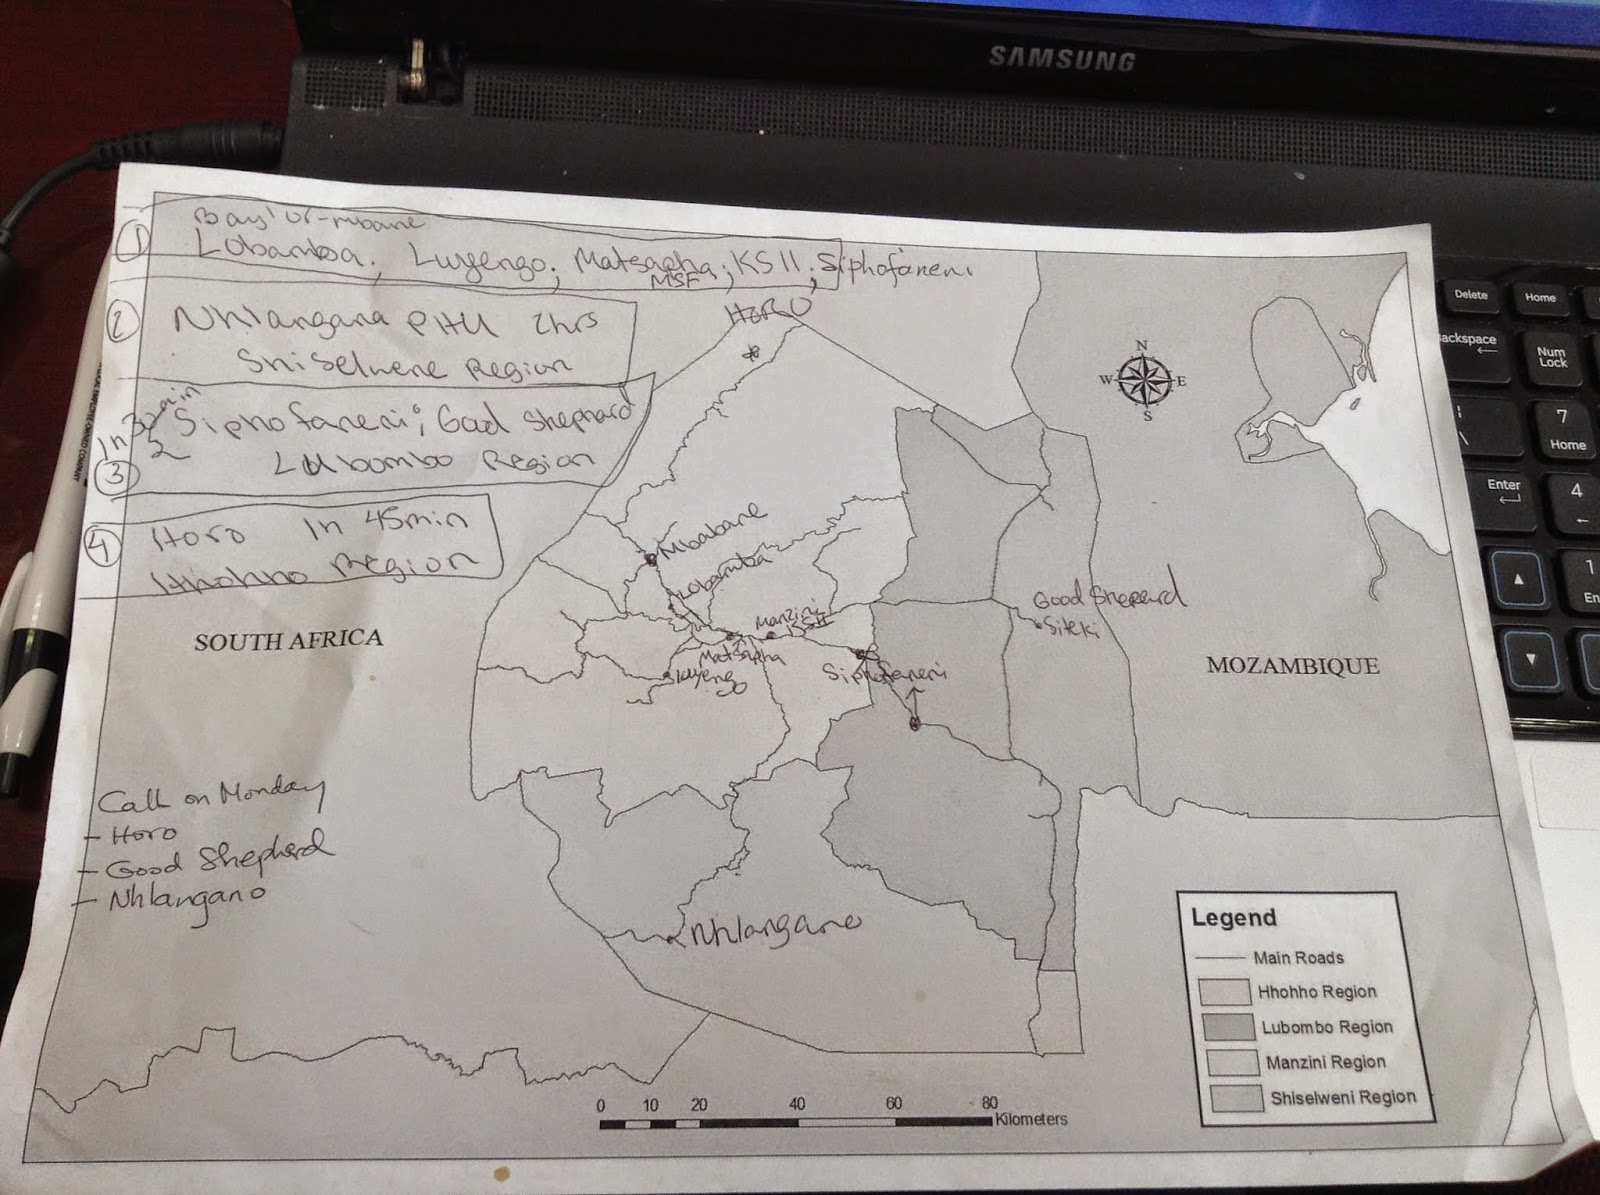 SAMSUNG
Delete
Home
Backspace
Num Lock
7
Home
Enter
4
1
En
\
① Baylor-mbane
Lobamba, Luyengo, Matsapha, KSII, Siphofaneni
MSF
② Nhlangana PHU 2hrs
Shiselwene Region
In 32min
③ Siphofaneni; Good Shephard
Lubombo Region
④ Horo In 45min
Hhohho Region
HORO
N
W E
S
Mbabane
Lobamba
Manzini
KSII
Matsapha
Luyengo
Siphofaneni
Good Sheperd
Siteki
SOUTH AFRICA
MOZAMBIQUE
Call on Monday
- Horo
- Good Shepherd
- Nhlangano
Nhlangano
Legend
Main Roads
Hhohho Region
Lubombo Region
Manzini Region
Shiselweni Region
0 10 20 40 60 80
Kilometers